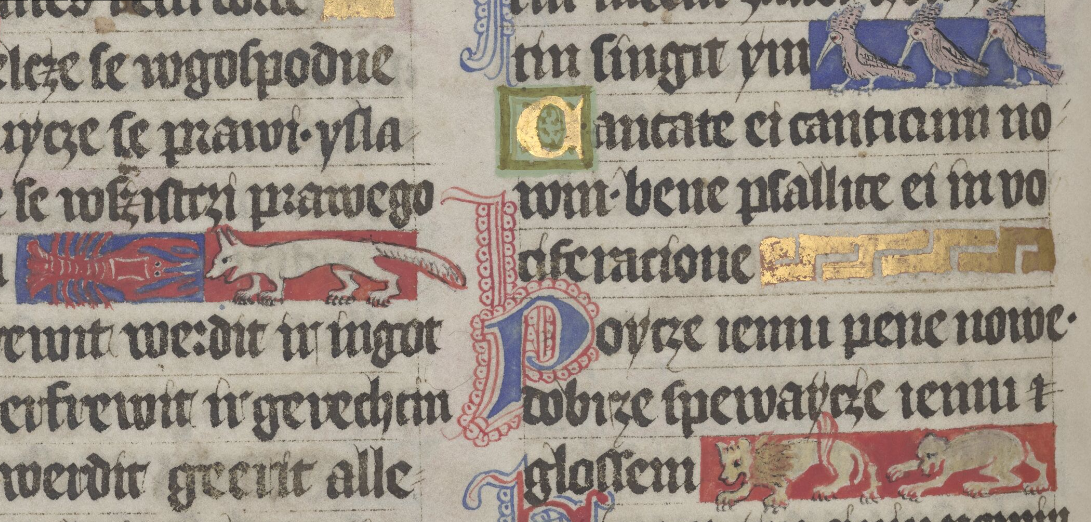 elcze se wgospodne
uycze se prawi·ysla
se wszistczi prawego
werdit ir ingot
erfrewit ir gerechtin
werdit geerit alle
tin singit ym
Cantate ei canticum no
uum·bene psallite ei in vo
ciferacione
Poycze iemu pene nowe·
dobrze spewaycze iemu z
glossem